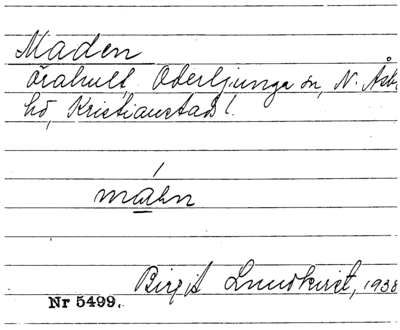 Maden
Örahult, Oderljunga sn, N. Åsbo
hd, Kristianstads l.
máhn
Birgit Lundkvist, 1938
Nr 5499.